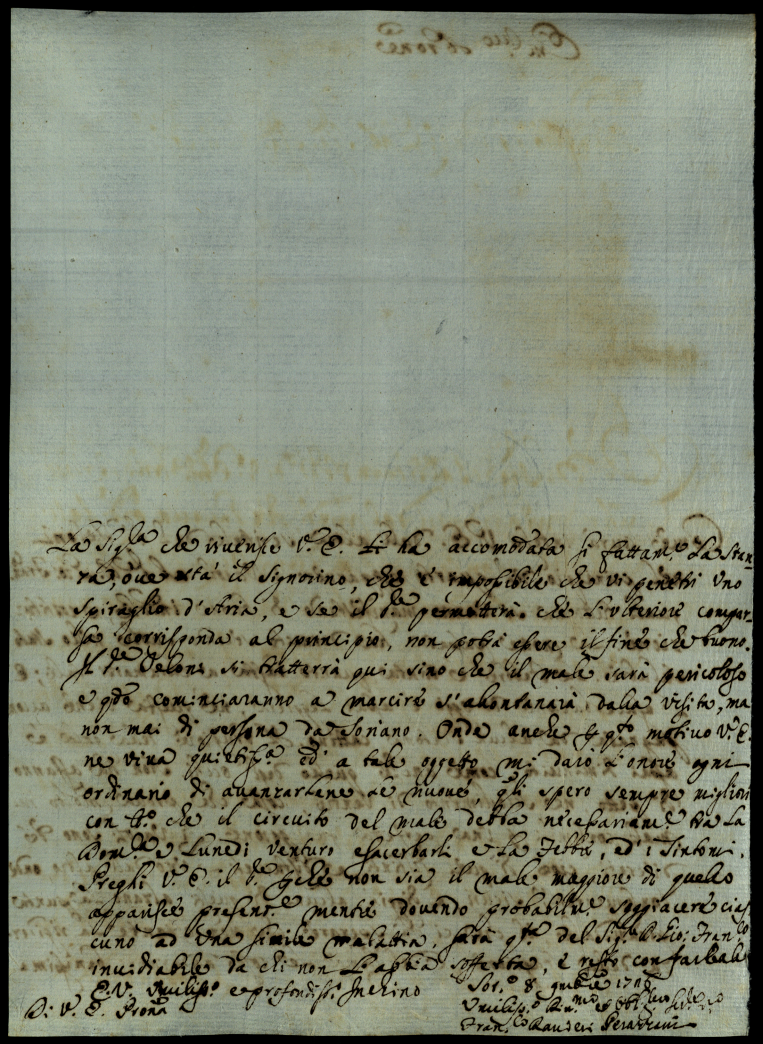 La Sig.ra che riverisce V.E. Le ha accomodata sì fattam.e la Stan-
za, ove sta il Signorino, che è impossibile che vi penetri uno
spiraglio d'Aria, e se il permetterà che l'ulteriore compar-
sa corrisponda al principio, non potrà essere il fine che buono.
Il si tratterrà qui sino che il male sarà pericoloso
e qdo cominciaranno a marcire s'alontanarà dalla visita, ma
non mai di persona da Soriano. Onde anche p qto motivo V.E.
ne viva quietiss.a ed a tale oggetto mi darò l'onore ogni
ordinario di avanzarlene le nuove, qli spero sempre migliori
con che il circuito del male debba necessariam.e tra la
Dom.ca e Lunedì venturo esacerbarli e la Febbre, ed i Sintomi.
Preghi V.E. il pchè non sia il male maggiore di quello
apparisce present.e mentre dovendo probabilm.e soggiacere cias-
cuno ad una simile malattia, sarà del Sig.r D. Gio: Fran.co
invidiabile da chi non l'abbia sofferta, e resto con farle
Umiliss.o e profondiss.o Inchino
Di V.E. Sor.o 8
Umiliss.o
Fran.co